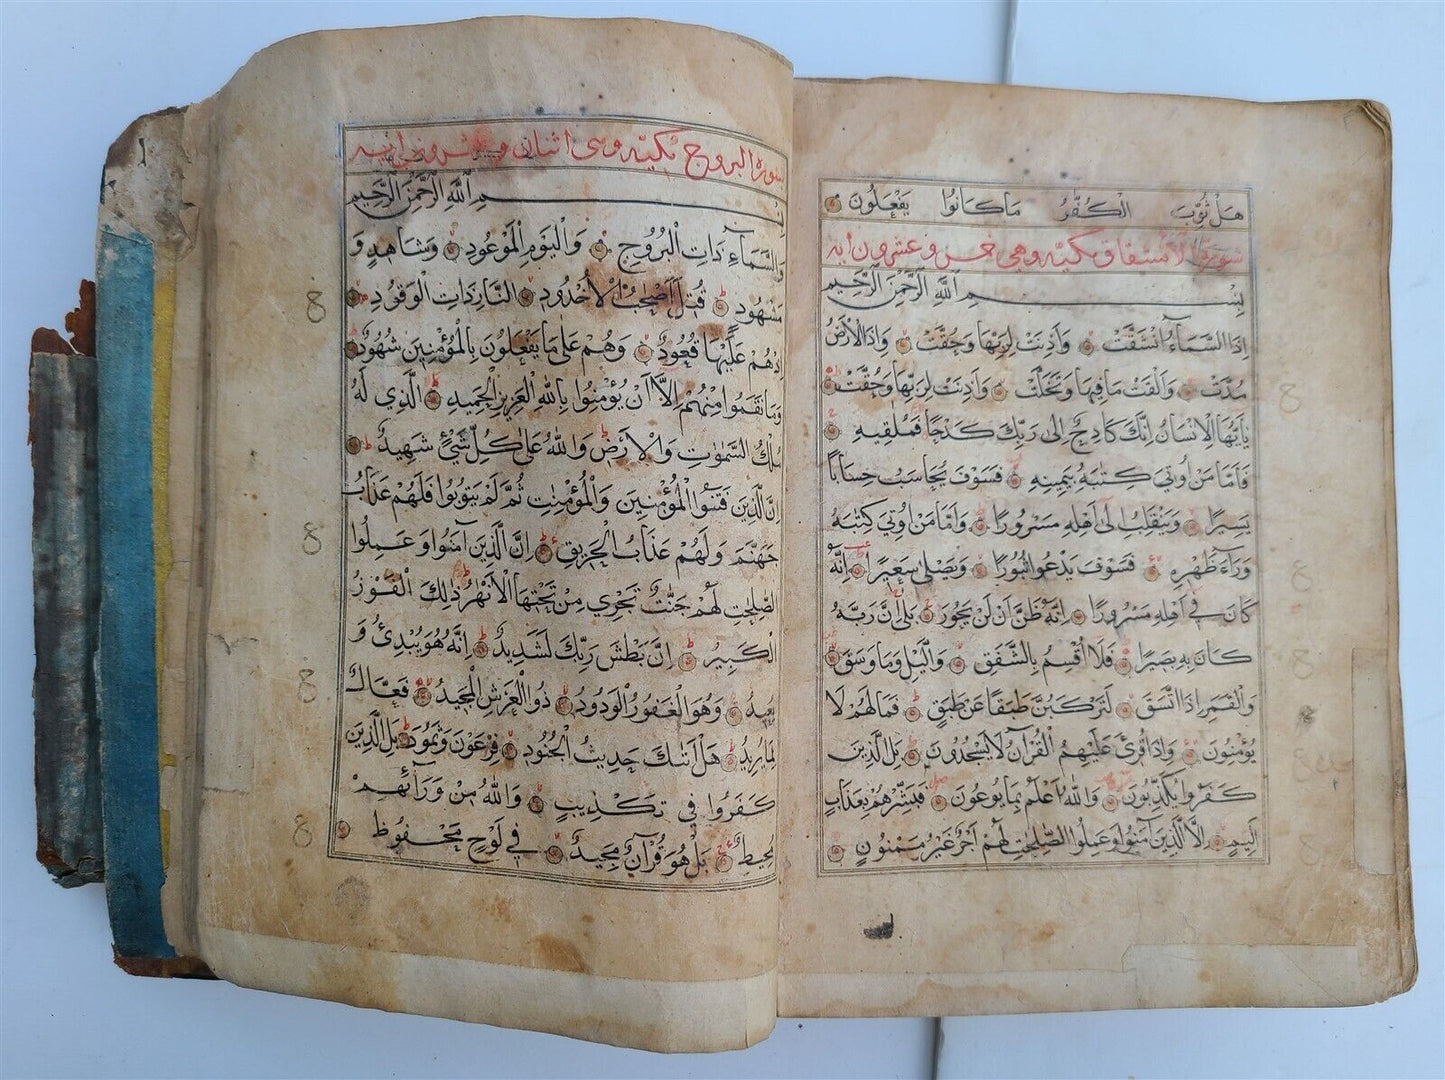 هَلْ ثُوِّبَ الْكُفَّارُ مَا كَانُوا يَفْعَلُونَ
سورة الانشقاق مكية وهى خمس وعشرون اية
بِسْمِ اللَّهِ الرَّحْمٰنِ الرَّحِيمِ
اِذَا السَّمَاءُ انْشَقَّتْ وَاَذِنَتْ لِرَبِّهَا وَحُقَّتْ وَاِذَا الْاَرْضُ
مُدَّتْ وَاَلْقَتْ مَا فِيهَا وَتَخَلَّتْ وَاَذِنَتْ لِرَبِّهَا وَحُقَّتْ
يَا اَيُّهَا الْاِنْسَانُ اِنَّكَ كَادِحٌ اِلٰى رَبِّكَ كَدْحًا فَمُلَاقِيهِ
فَاَمَّا مَنْ اُوتِيَ كِتٰبَهُ بِيَمِينِهِ فَسَوْفَ يُحَاسَبُ حِسَابًا
يَسِيرًا وَيَنْقَلِبُ اِلٰى اَهْلِهِ مَسْرُورًا وَاَمَّا مَنْ اُوتِيَ كِتٰبَهُ
وَرَاءَ ظَهْرِهِ فَسَوْفَ يَدْعُوا ثُبُورًا وَيَصْلٰى سَعِيرًا اِنَّهُ
كَانَ فِي اَهْلِهِ مَسْرُورًا اِنَّهُ ظَنَّ اَنْ لَنْ يَحُورَ بَلٰى اِنَّ رَبَّهُ
كَانَ بِهِ بَصِيرًا فَلَا اُقْسِمُ بِالشَّفَقِ وَالَّيْلِ وَمَا وَسَقَ
وَالْقَمَرِ اِذَا اتَّسَقَ لَتَرْكَبُنَّ طَبَقًا عَنْ طَبَقٍ فَمَا لَهُمْ لَا
يُؤْمِنُونَ وَاِذَا قُرِئَ عَلَيْهِمُ الْقُرْآنُ لَا يَسْجُدُونَ بَلِ الَّذِينَ
كَفَرُوا يُكَذِّبُونَ وَاللّٰهُ اَعْلَمُ بِمَا يُوعُونَ فَبَشِّرْهُمْ بِعَذَابٍ
اَلِيمٍ اِلَّا الَّذِينَ آمَنُوا وَعَمِلُوا الصّٰلِحٰتِ لَهُمْ اَجْرٌ غَيْرُ مَمْنُونٍ
سورة البروج مكية وهى اثنان وعشرون اية
بِسْمِ اللَّهِ الرَّحْمٰنِ الرَّحِيمِ
وَالسَّمَاءِ ذَاتِ الْبُرُوجِ وَالْيَوْمِ الْمَوْعُودِ وَشَاهِدٍ وَ
مَشْهُودٍ قُتِلَ اَصْحٰبُ الْاُخْدُودِ النَّارِ ذَاتِ الْوَقُودِ
اِذْ هُمْ عَلَيْهَا قُعُودٌ وَهُمْ عَلٰى مَا يَفْعَلُونَ بِالْمُؤْمِنِينَ شُهُودٌ
وَمَا نَقَمُوا مِنْهُمْ اِلَّا اَنْ يُؤْمِنُوا بِاللّٰهِ الْعَزِيزِ الْحَمِيدِ الَّذِي لَهُ
مُلْكُ السَّمٰوٰتِ وَالْاَرْضِ وَاللّٰهُ عَلٰى كُلِّ شَيْءٍ شَهِيدٌ
اِنَّ الَّذِينَ فَتَنُوا الْمُؤْمِنِينَ وَالْمُؤْمِنٰتِ ثُمَّ لَمْ يَتُوبُوا فَلَهُمْ عَذَابُ
جَهَنَّمَ وَلَهُمْ عَذَابُ الْحَرِيقِ اِنَّ الَّذِينَ آمَنُوا وَعَمِلُوا
الصّٰلِحٰتِ لَهُمْ جَنّٰتٌ تَجْرِي مِنْ تَحْتِهَا الْاَنْهٰرُ ذٰلِكَ الْفَوْزُ
الْكَبِيرُ اِنَّ بَطْشَ رَبِّكَ لَشَدِيدٌ اِنَّهُ هُوَ يُبْدِئُ وَ
يُعِيدُ وَهُوَ الْغَفُورُ الْوَدُودُ ذُو الْعَرْشِ الْمَجِيدُ فَعَّالٌ
لِمَا يُرِيدُ هَلْ اَتٰىكَ حَدِيثُ الْجُنُودِ فِرْعَوْنَ وَثَمُودَ بَلِ الَّذِينَ
كَفَرُوا فِي تَكْذِيبٍ وَاللّٰهُ مِنْ وَرَآئِهِمْ
مُحِيطٌ بَلْ هُوَ قُرْآنٌ مَجِيدٌ فِي لَوْحٍ مَحْفُوظٍ